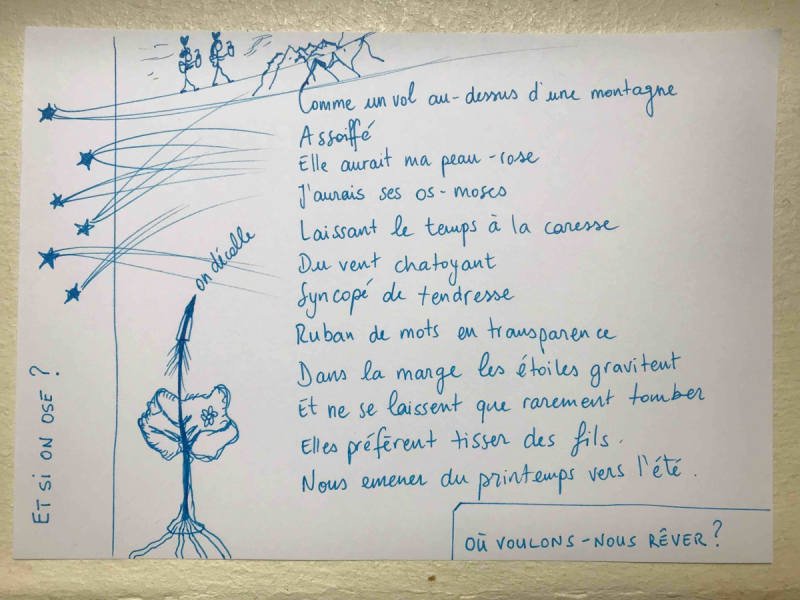 Comme un vol au-dessus d'une montagne
Assoiffé
Elle aurait ma peau-rose
J'aurais ses os-moses
Laissant le temps à la caresse
Du vent chatoyant
Syncopé de tendresse
Ruban de mots en transparence
Dans la marge les étoiles gravitent
Et ne se laissent que rarement tomber
Elles préfèrent tisser des fils.
Nous emener du printemps vers l'été.
on décolle
ET SI ON OSE ?
OÙ VOULONS-NOUS RÊVER ?